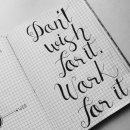 Don't
wish
for it.
Work
for it